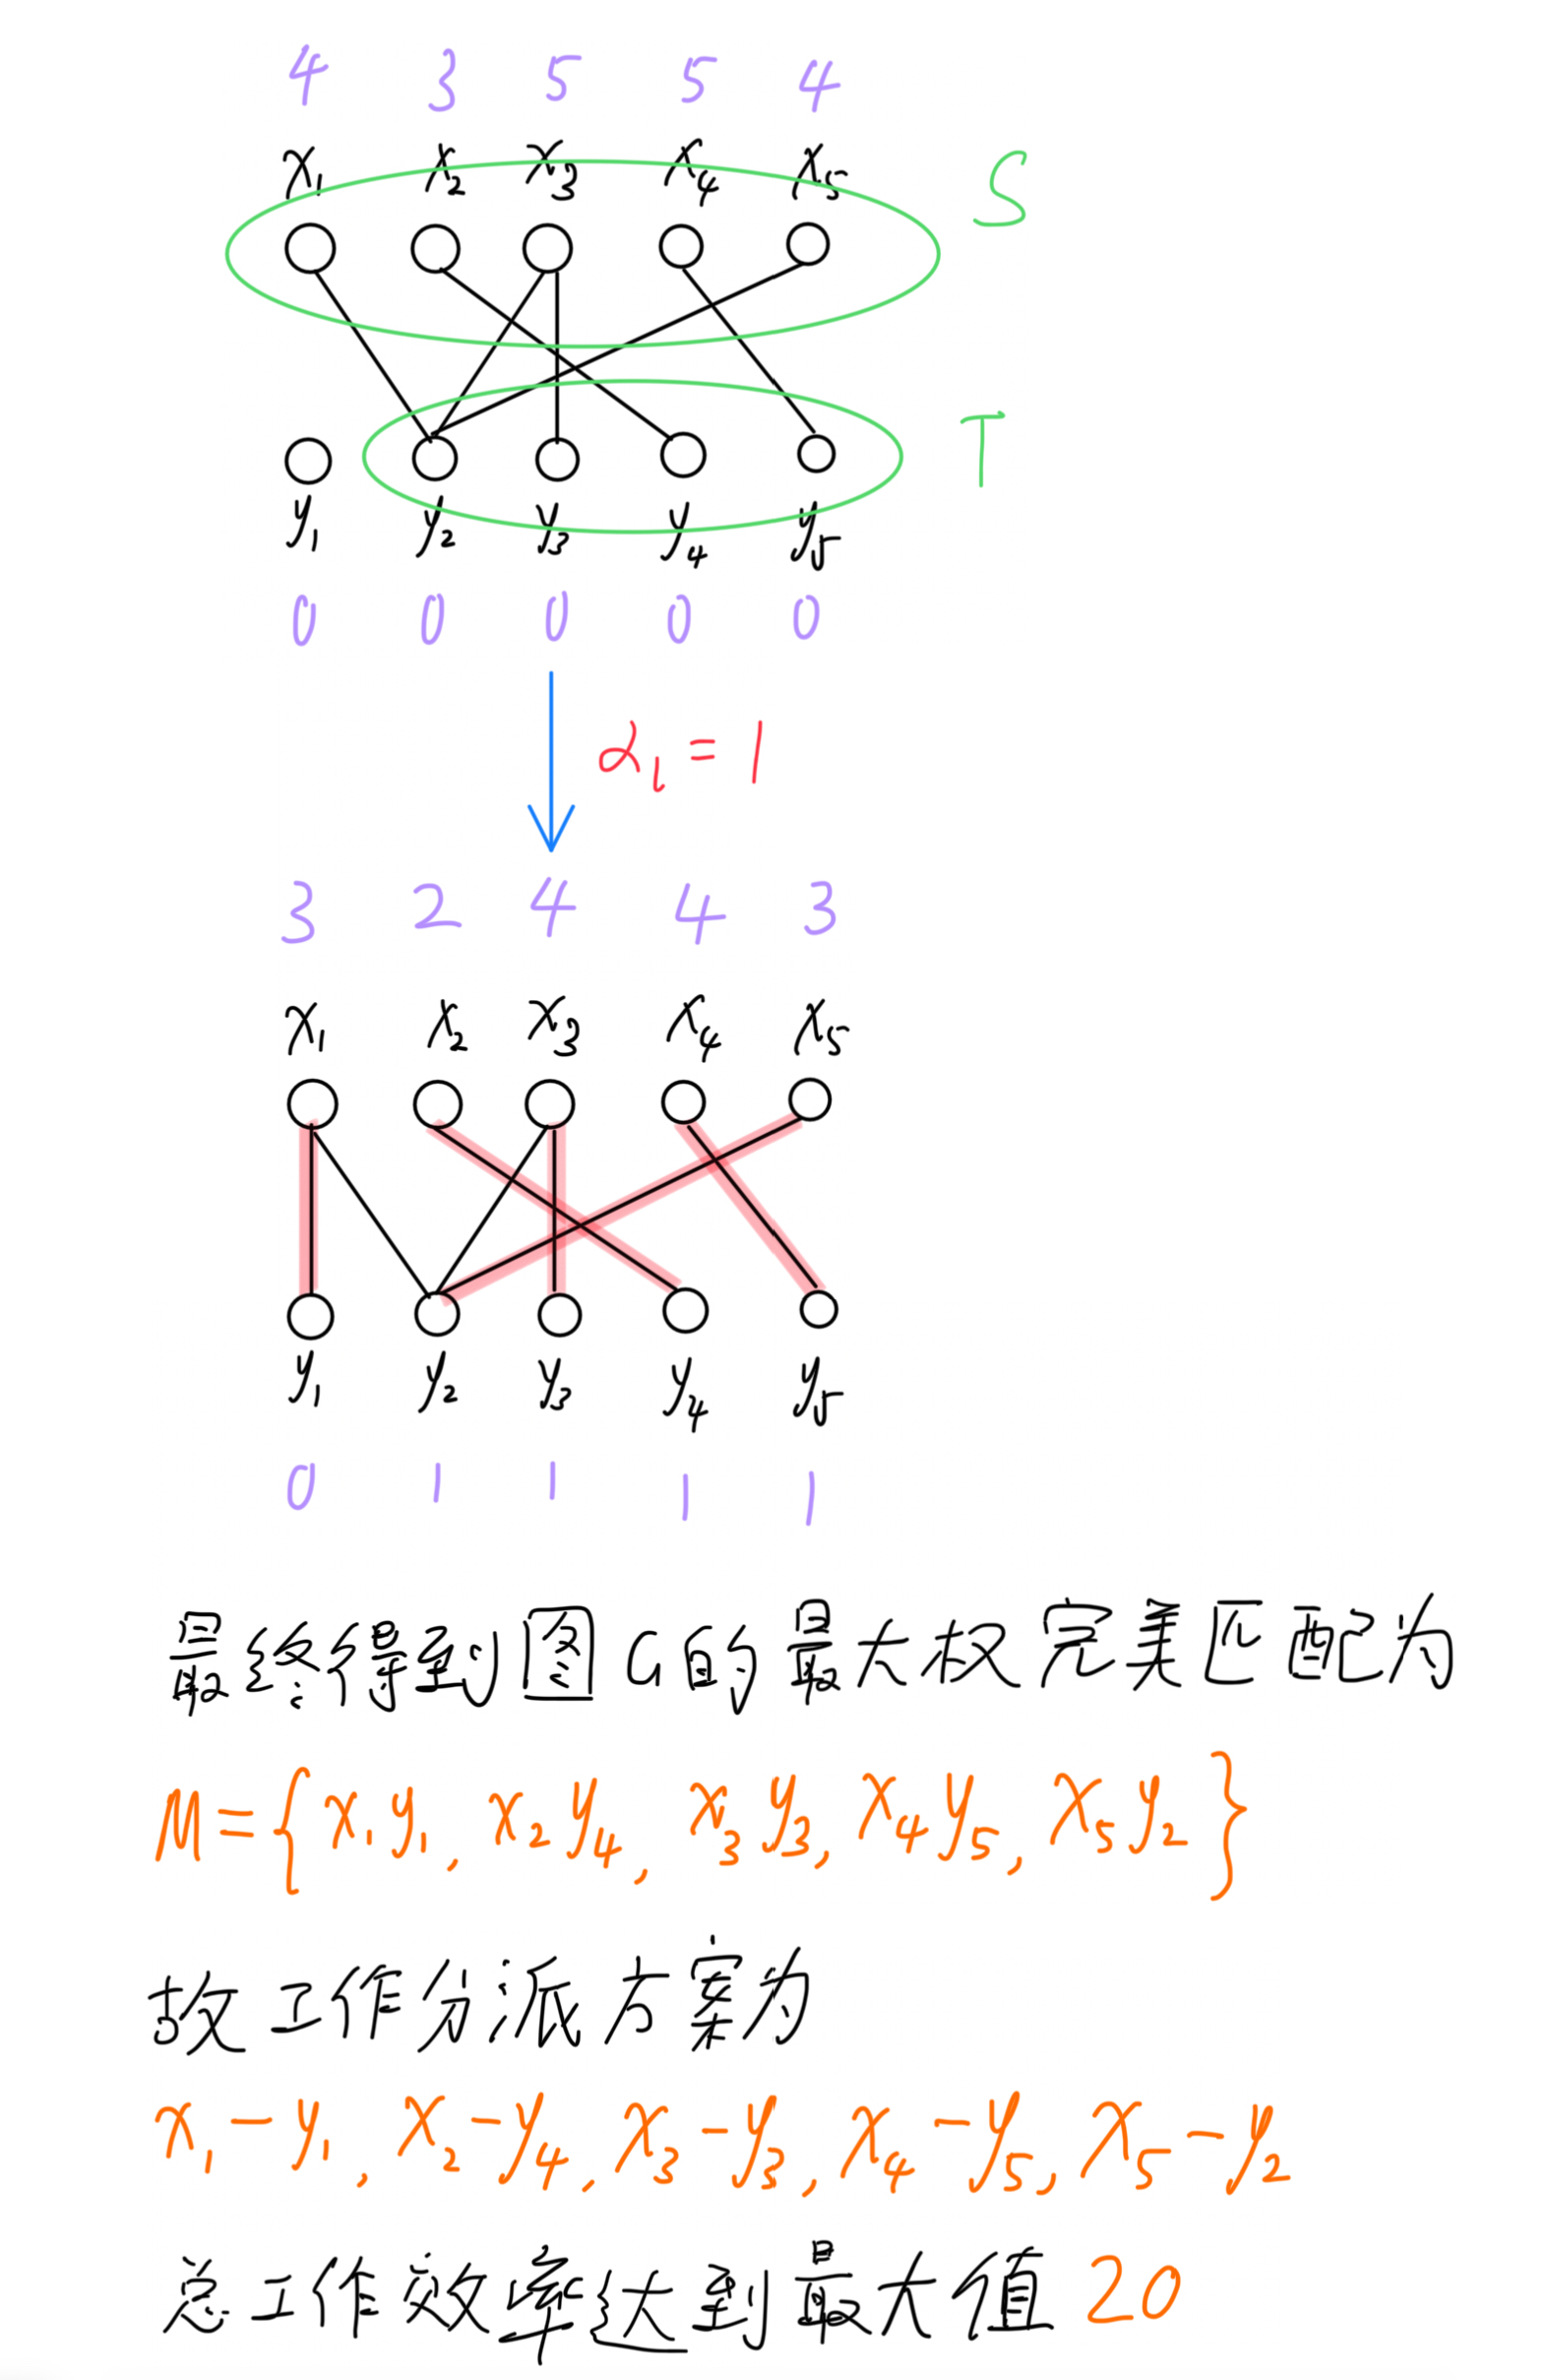 4 3 5 5 4
x₁ x₂ x₃ x₄ x₅
S
T
y₁ y₂ y₃ y₄ y₅
0 0 0 0 0
α₁ = 1
3 2 4 4 3
x₁ x₂ x₃ x₄ x₅
y₁ y₂ y₃ y₄ y₅
0 1 1 1 1
最终得到图G的最大权完美匹配为
M={x₁y₁, x₂y₄, x₃y₃, x₄y₅, x₅y₂}
故工作分派方案为
x₁-y₁, x₂-y₄, x₃-y₃, x₄-y₅, x₅-y₂
总工作效率达到最大值20